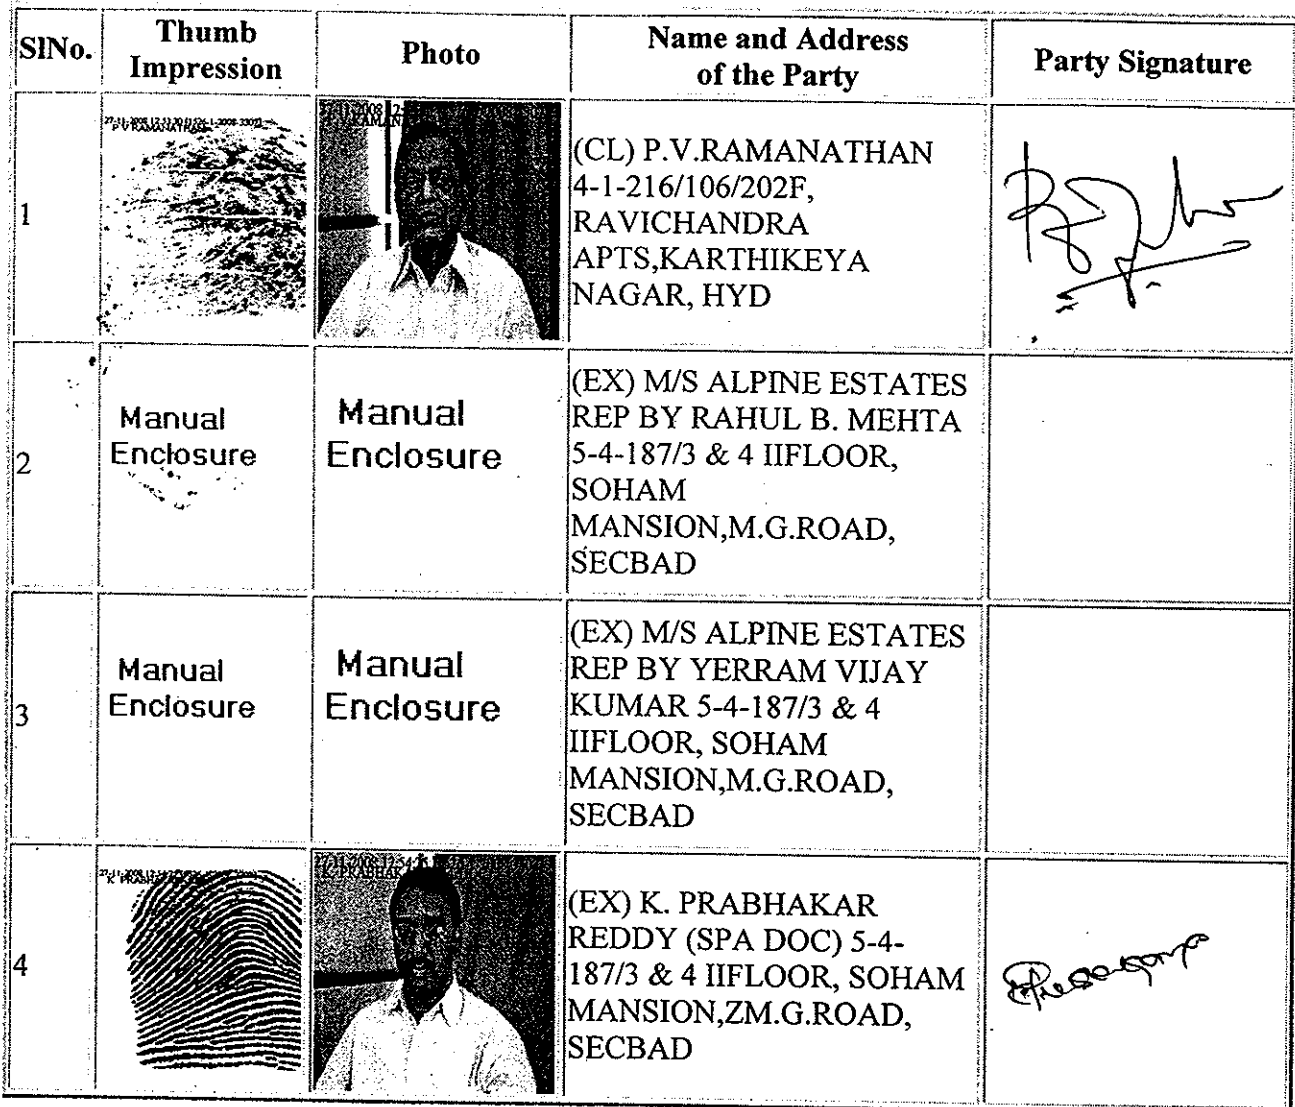 SlNo.
Thumb
Impression
Photo
Name and Address
of the Party
Party Signature
1
P V RAMANATHAN
(CL) P.V.RAMANATHAN
4-1-216/106/202F,
RAVICHANDRA
APTS,KARTHIKEYA
NAGAR, HYD
2
Manual
Enclosure
Manual
Enclosure
(EX) M/S ALPINE ESTATES
REP BY RAHUL B. MEHTA
5-4-187/3 & 4 IIFLOOR,
SOHAM
MANSION,M.G.ROAD,
SECBAD
3
Manual
Enclosure
Manual
Enclosure
(EX) M/S ALPINE ESTATES
REP BY YERRAM VIJAY
KUMAR 5-4-187/3 & 4
IIFLOOR, SOHAM
MANSION,M.G.ROAD,
SECBAD
4
(EX) K. PRABHAKAR
REDDY (SPA DOC) 5-4-
187/3 & 4 IIFLOOR, SOHAM
MANSION,ZM.G.ROAD,
SECBAD